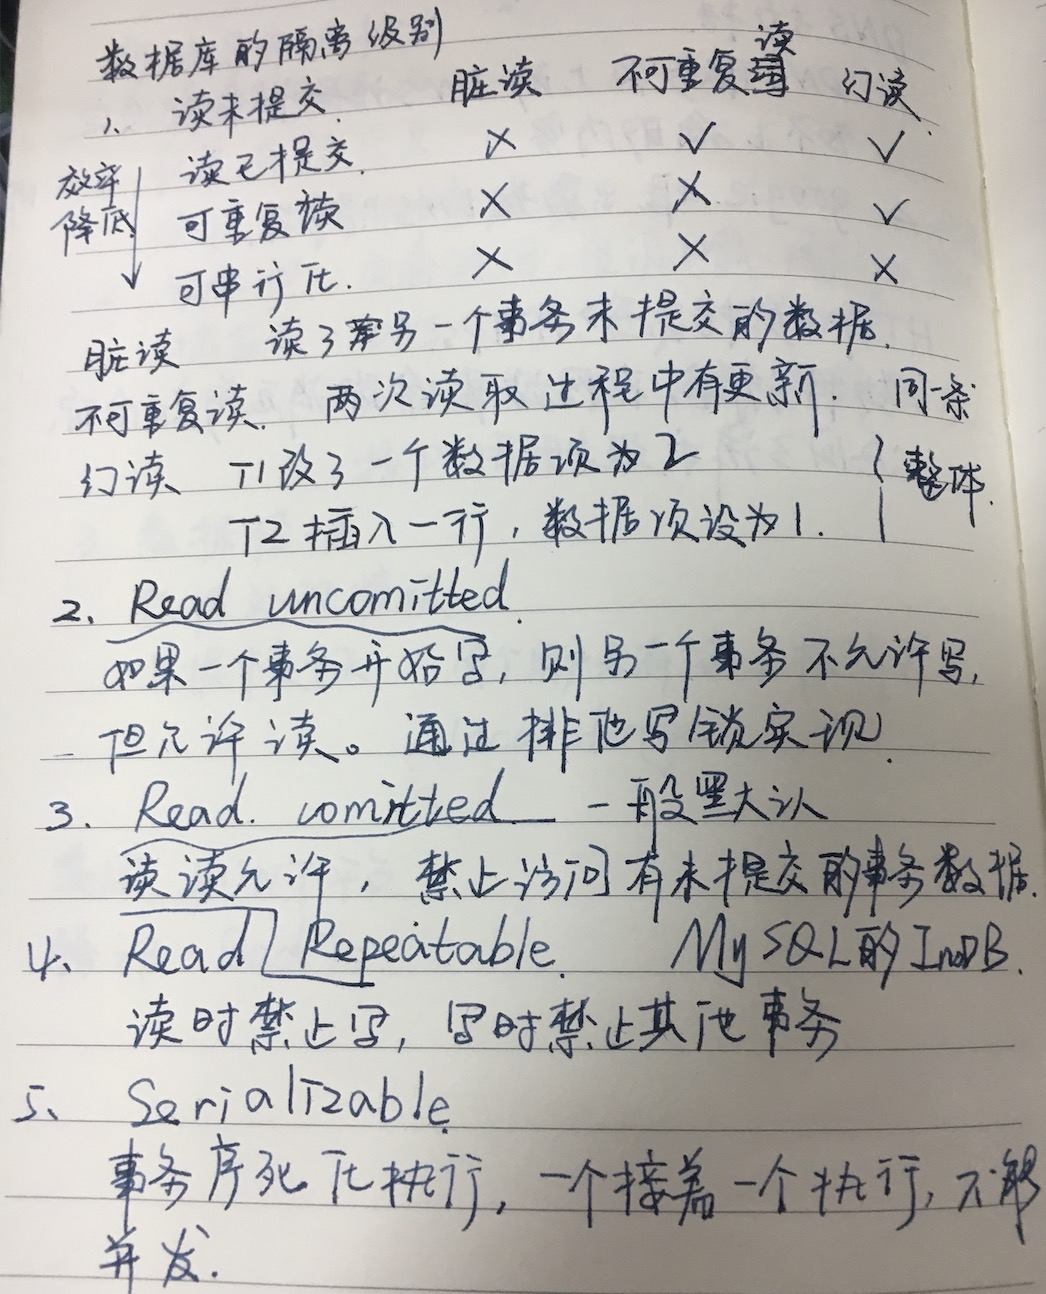 数据库的隔离级别
脏读 不可重复读 幻读
1、 读未提交.
读已提交. × ✓ ✓
效率降低 可重复读 × × ✓
可串行化. × × ×
脏读 读了另一个事务未提交的数据.
不可重复读. 两次读取过程中有更新. 同一条
幻读 T1改了一个数据项为2 整体.
T2插入一行,数据项设为1.
2、 Read uncomitted.
如果一个事务开始写,则另一个事务不允许写,
但允许读。通过排他写锁实现.
3. Read. comitted 一般默认
读读允许,禁止访问有未提交的事务数据.
4、 Read Repeatable. MySQL的InnoDB.
读时禁止写,写时禁止其他事务
5、 Serializable.
事务序列化执行,一个接着一个执行,不能
并发.